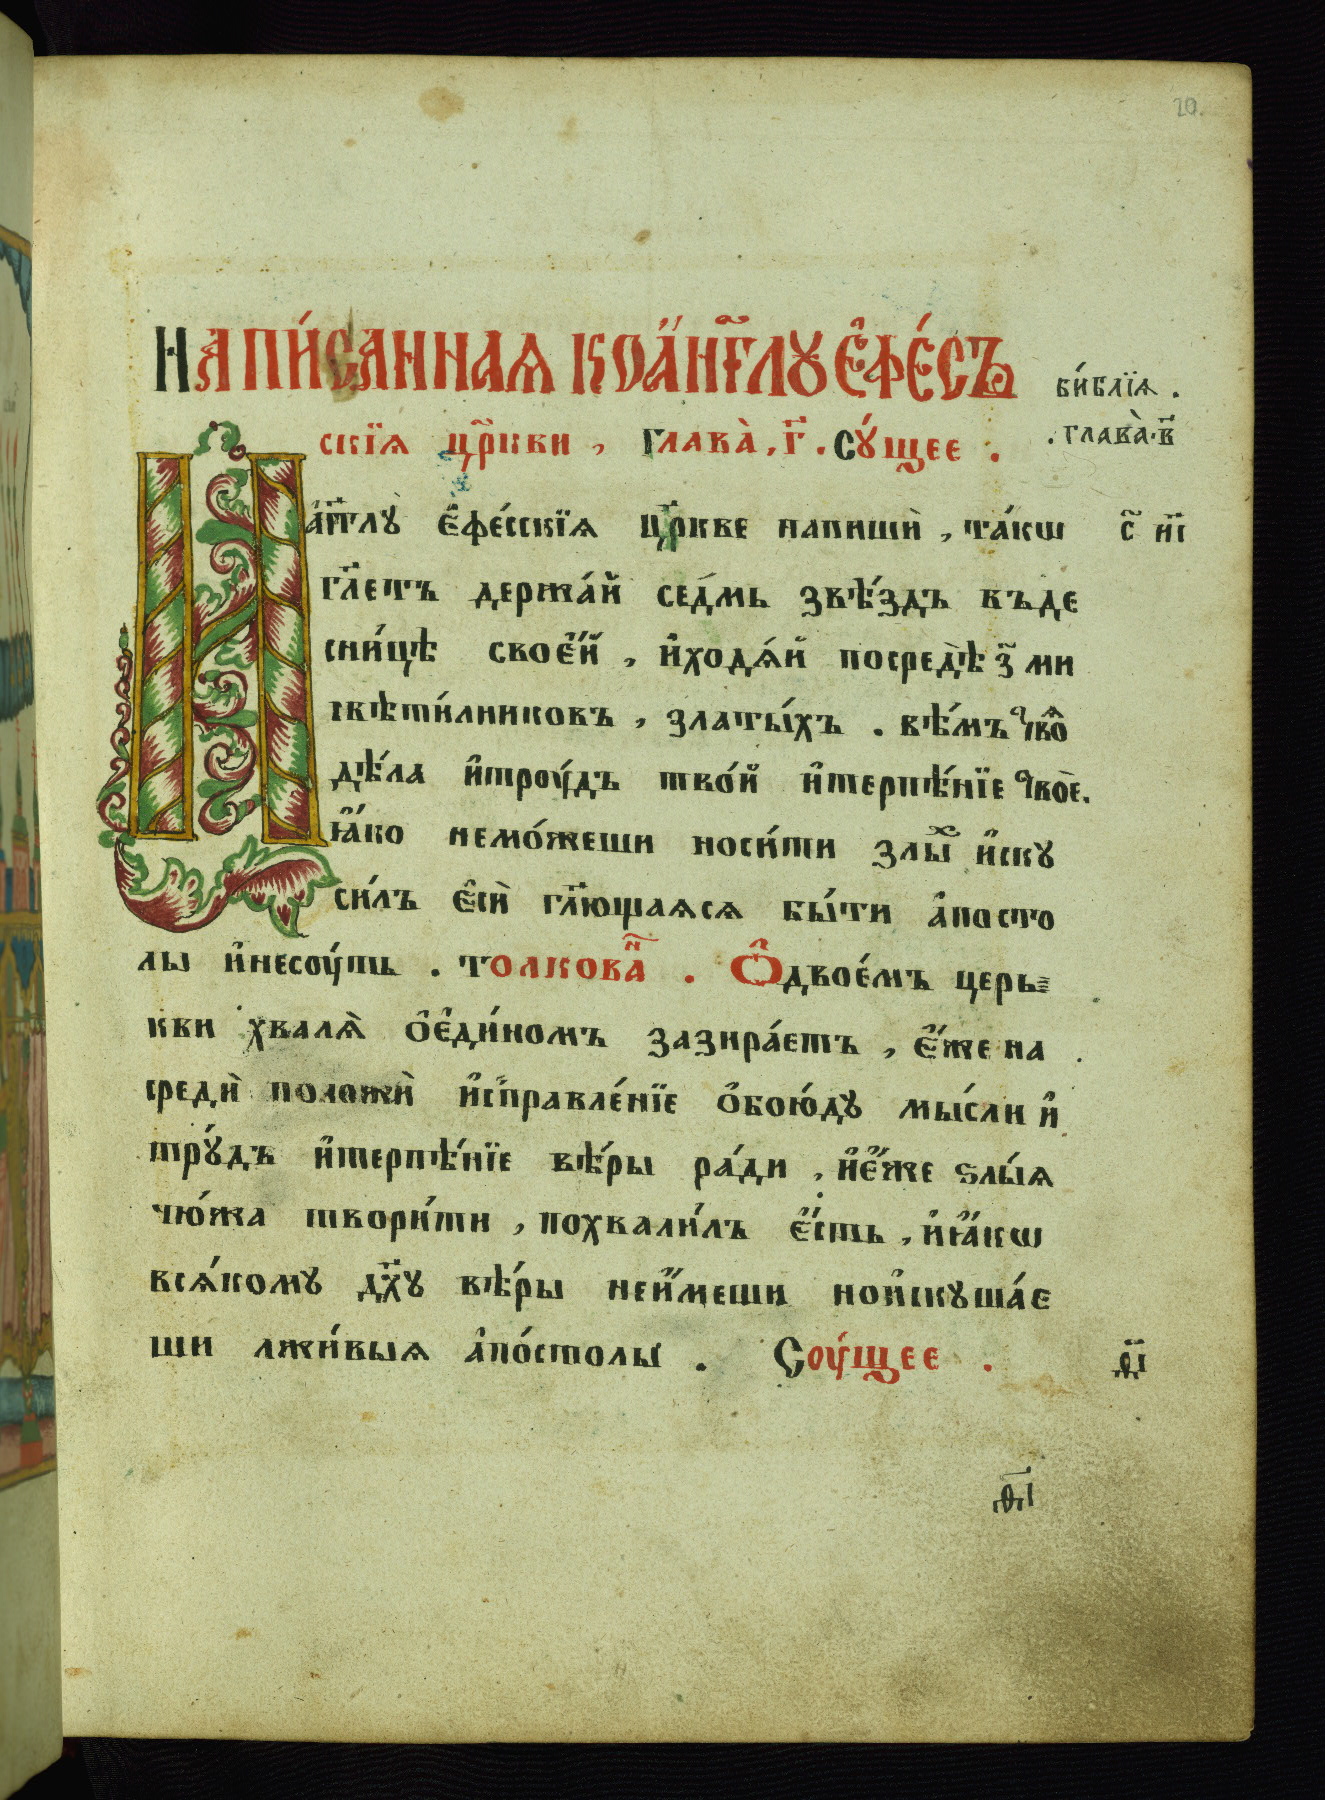 20.
Напи́саннаѧ коа҆́нг҃лꙋ є҆фе́съ
скїѧ цр҃кви , глава̀ , г҃ . сꙋ́щее .
би́блїѧ .
. глава̀ · в҃
а҆́гг҃лꙋ є҆фе́сскїѧ цр҃кве напишѝ , та́кѡ
с҃ н҃і
гл҃етъ держа́й се́дмь ѕвѣ́здъ въде
сни́цѣ свое҆́й , и҆ходѧ́й посредѣ̀ з҃ ми
свѣти́лниковъ , златы́хъ . вѣ́мъ твоѧ̑
дѣ́ла и҆трꙋ́дъ тво́й и҆терпѣ́нїе твоѐ.
ꙗ҆́ко немо́жеши носи́ти злы́х и҆скꙋ
си́лъ є҆сѝ гл҃ющаѧсѧ бы́ти а҆посто
лы и҆несꙋ́ть . толкова́н . Ѽ двое́мъ церь
кви хвалѧ̀ о҆є҆ди́номъ зазира́етъ , є҆́же на
средѝ положѝ и҆справле́нїе о҆бою́дꙋ мы́сли и҆
трꙋ́дъ и҆терпѣ́нїе вѣ́ры ра́ди , и҆є҆́же ѕлы́ѧ
чю́жа твори́ти , похвали́лъ є҆́сть , и҆ꙗ҆́кѡ
всѧ́комꙋ дх҃ꙋ вѣ́ры неи҆́меши нои҆скꙋша́е
ши лжи́выѧ а҆по́столы . Соу́щее .
д҃і